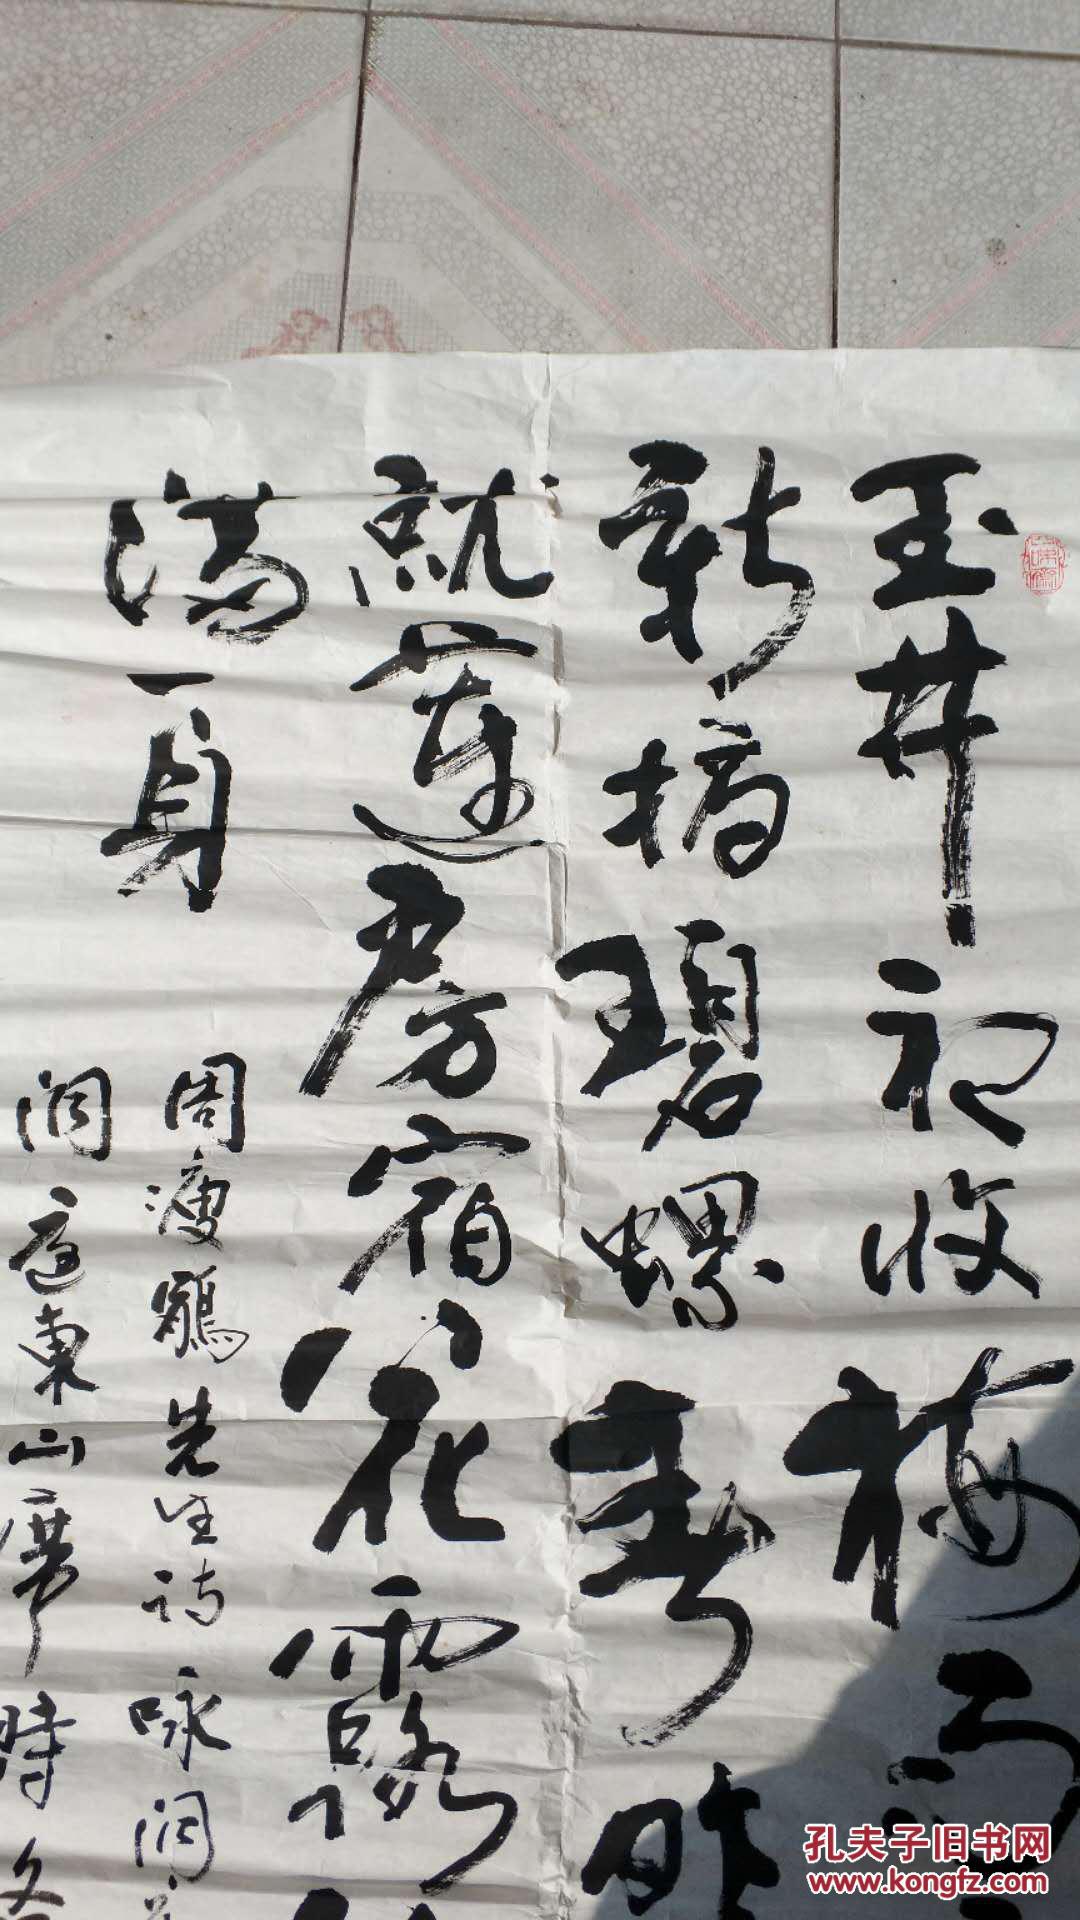 玉井初收梅雨
新摘碧螺春昨
就莲房宿花露
满一身
周瘦鹃先生诗咏洞
洞庭東山席时
孔夫子旧书网
www.kongfz.com